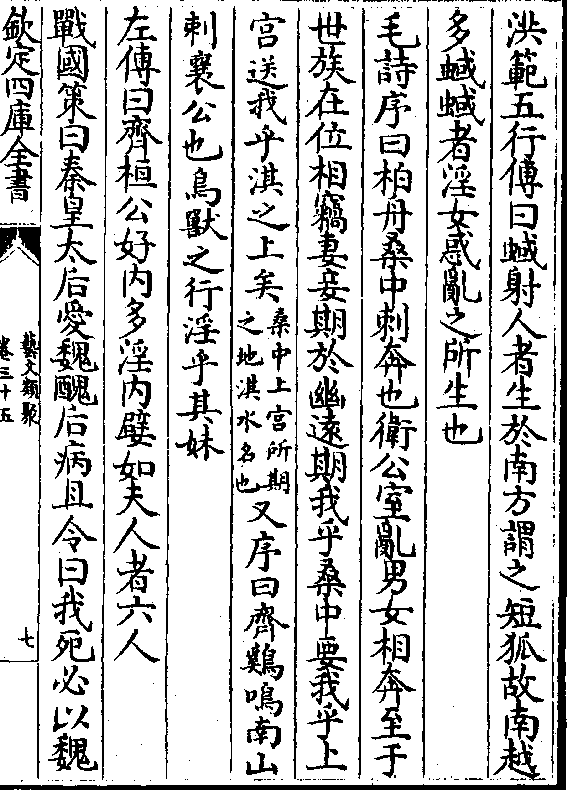 洪範五行傳曰蜮射人者生於南方謂之短狐故南越
多蜮蜮者淫女惑亂之所生也
毛詩序曰柏舟桑中刺奔也衛公室亂男女相奔至于
世族在位相竊妻妾期於幽遠期我乎桑中要我乎上
宫送我乎淇之上矣桑中上宫所期之地淇水名也又序曰齊雞鳴南山
刺襄公也鳥獸之行淫乎其妹
左傳曰齊桓公好内多淫内嬖如夫人者六人
戰國策曰秦皇太后愛魏醜后病且令曰我死必以魏
欽定四庫全書
藝文類聚
卷三十五
七